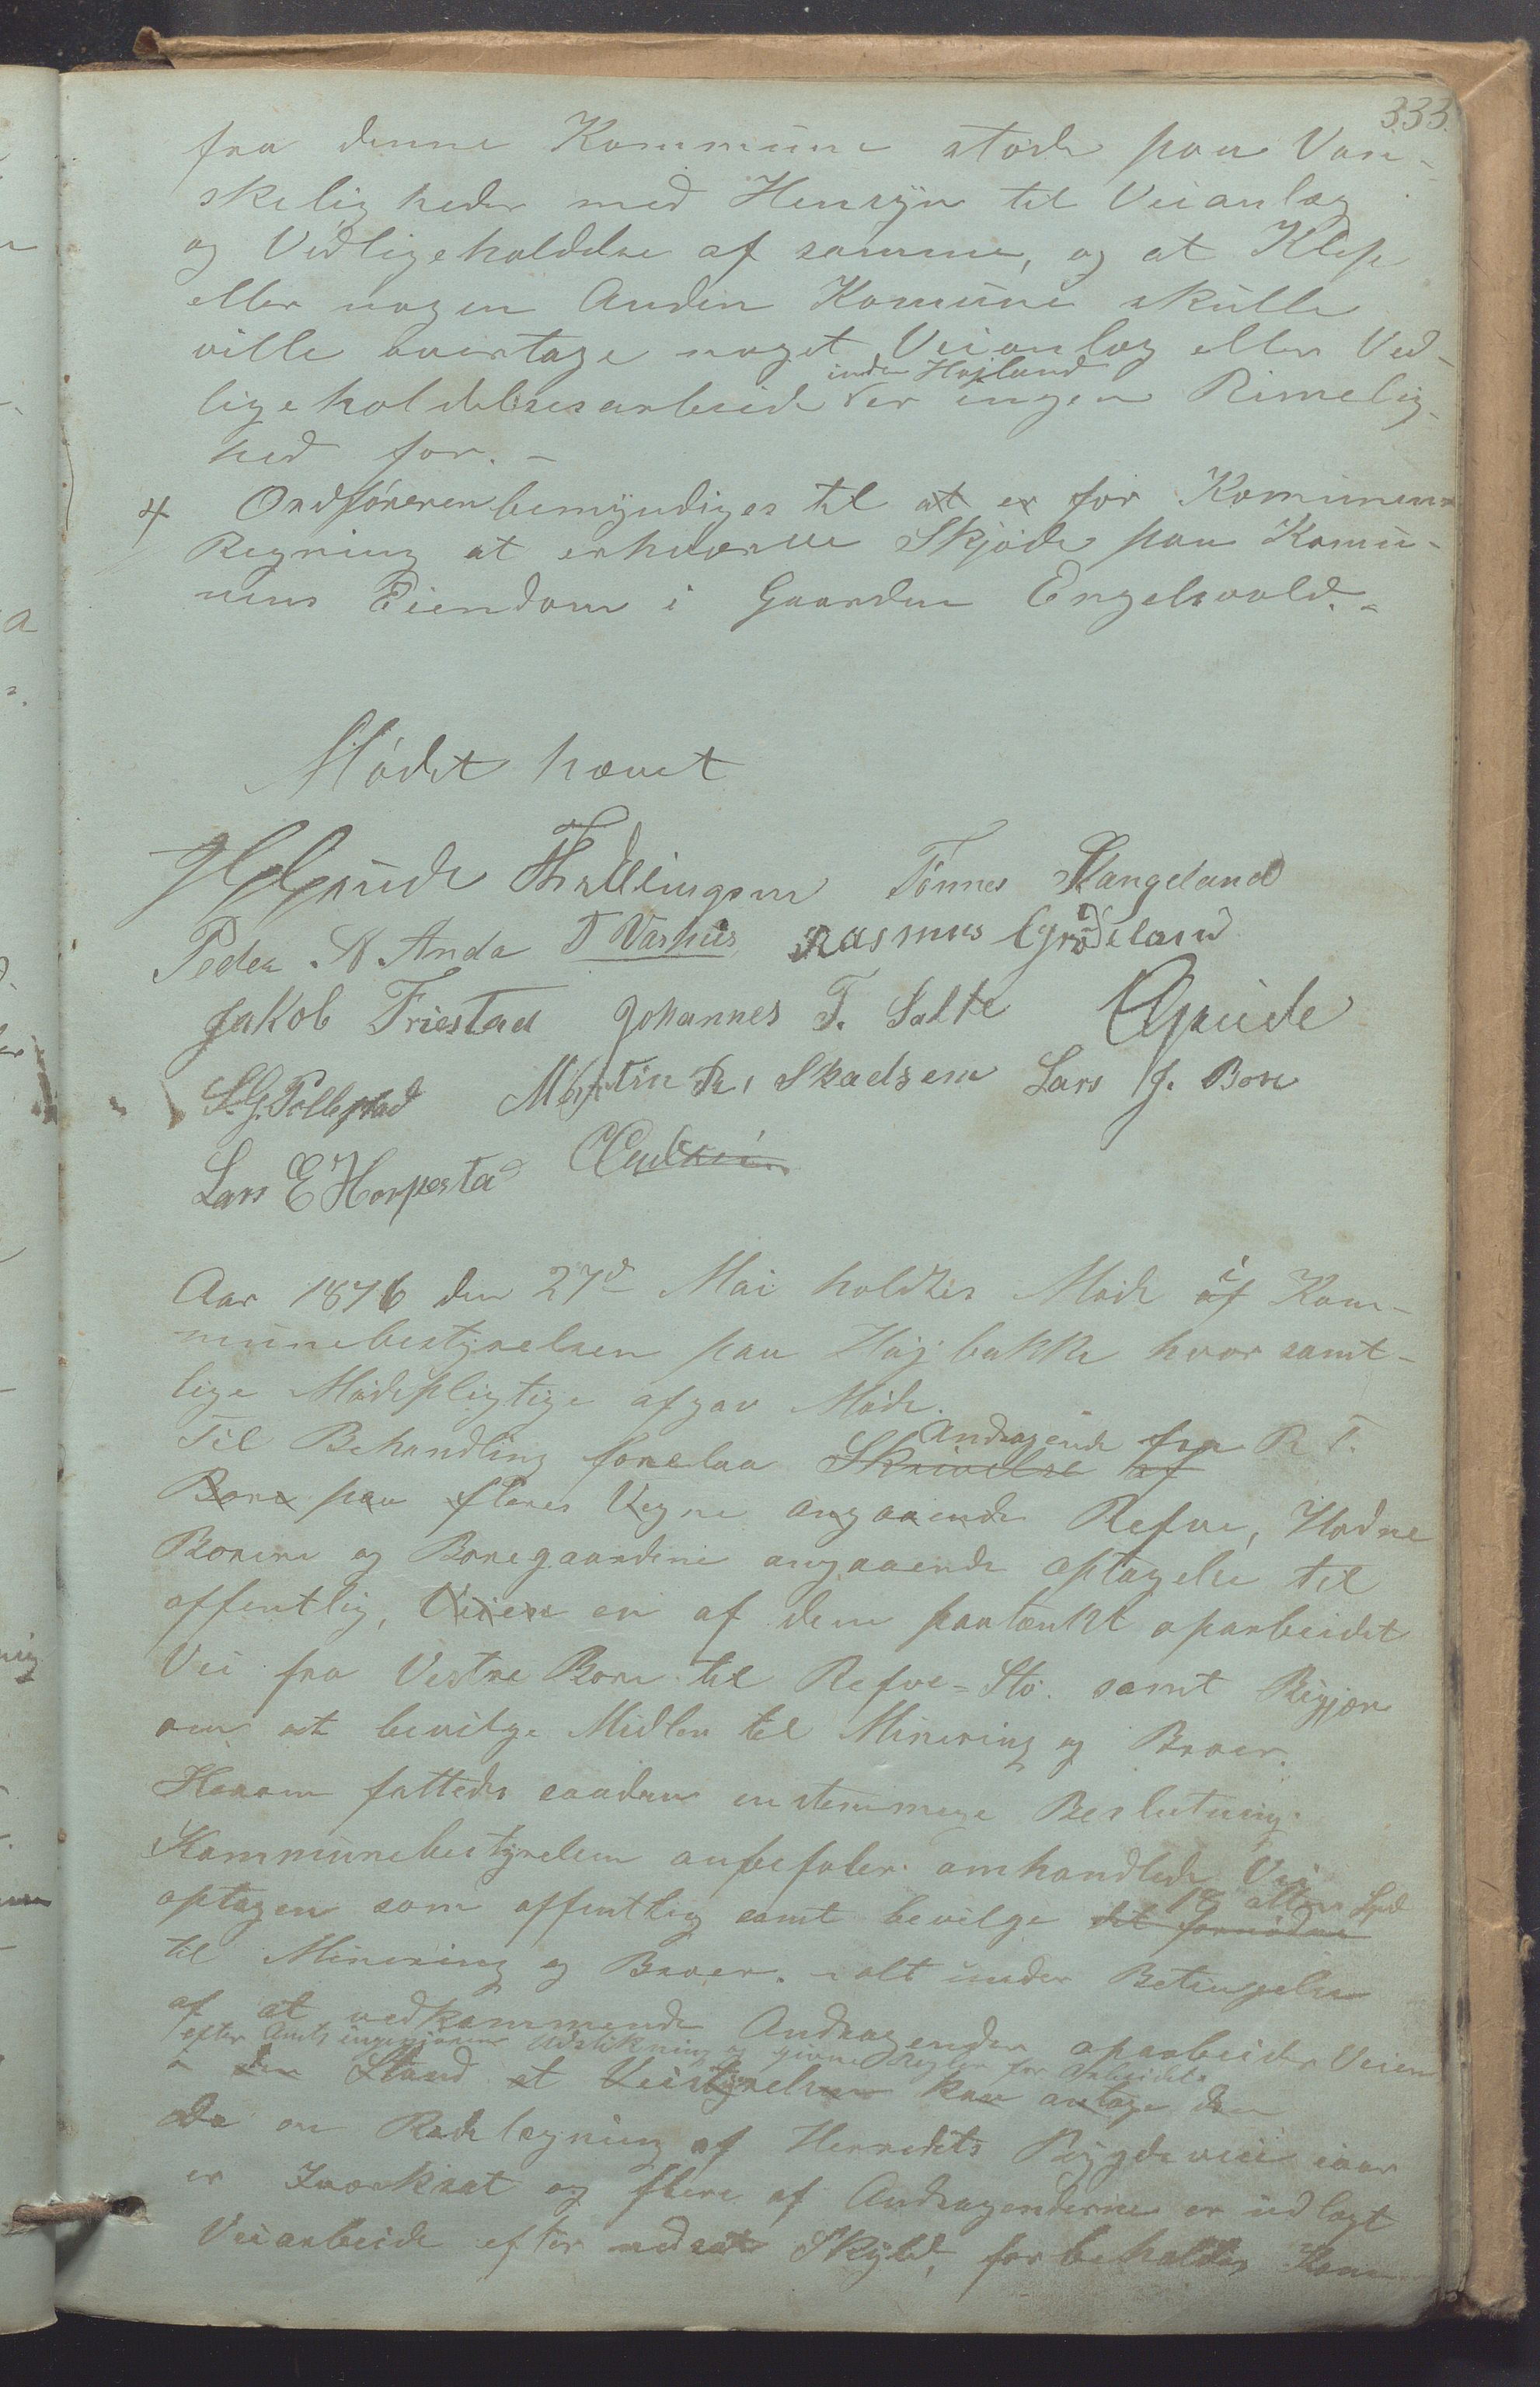 333.
fra denne Kommune støde paa Van-
skeligheder med Hensyn til Veianlæg
og Vedligeholdelse af samme, og at Klep
eller nogen Anden Komune skulle
ville overtage noget Veianlæg eller Ved-
inden Højland
ligeholdelsesarbeide er ingen Rimelig-
hed for. -
4 Ordføreren bemyndiges til at er for Komunens
Regning at erhverve Skjøde paa Komu-
nens Eiendom i Gaarden Engelsvold. -
Mødet hævet
Grude Tønnes Kangeland
Peder A. Anda T Varhus Rasmus Grødeland
Jakob Friestad Johannes T. Salte Grude
S. G. Pollestad Martin R. Skadsem Lars J. Bore
Lars E Horpestad
Aar 1876 den 27de Mai holdtes Møde af i Kom-
munebestyrelsen paa Højbakke hvor samt-
lige Mødepligtige afgav Møde.
Andragende fra R T.
Til Behandling forelaa Skrivelse af
Bore paa fleres Vegne angaaende Refve, Hodne
Borene og Boregaardene angaaende optagelse til
offentlig, Veien en af dem paatænkt oparbeidet
Vei fra Vestre Bore til Refve-Stø. samt Begjær
om at bevilge Midler til Minering og Broer.
Herom fattedes saadan enstemmige Beslutning:
Kommunebestyrelsen anbefaler omhandlede Vei
18 Spd
optagen som offentlig samt bevilge det fornødne
til Minering og Broer. alt under Betingelse
af at vedkommende Andragender oparbeider Veien
efter Amtsingeniørens Udstikning og givne Regler for Arbeidet.
i den Stand at Veistyrelsen kan antage den
Da en Rodelægning af Herredets Bygdeveie iaar
er Iværksat og flere af Andragenderne er udlagt
Veiarbeide efter Skyld, forbeholdes Kom-